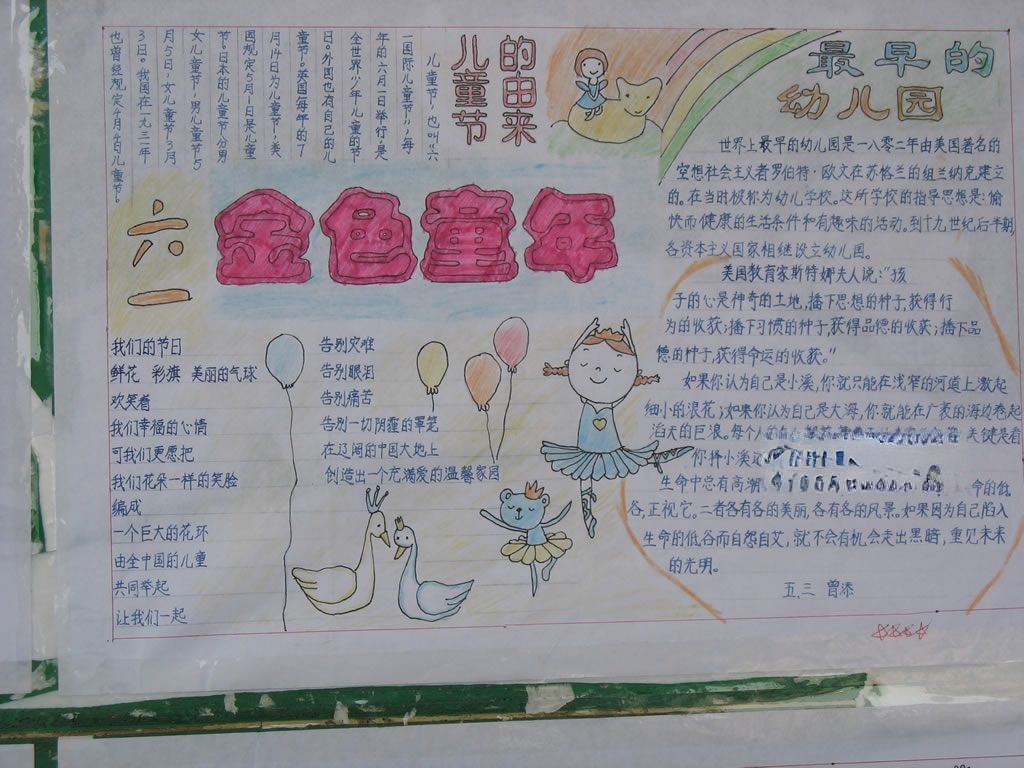 儿童节
的由来
儿童节,也叫“六
一国际儿童节”,每
年的六月一日举行,是
全世界少年儿童的节
日。外国也有自己的儿
童节。英国每年的7
月14日为儿童节,美
国规定5月1日是儿童
节。日本的儿童节分男
女儿童节,男儿童节5
月5日,女儿童节3月
3日。我国在一九三一年
也曾经规定4月4日儿童节。
六一
金色童年
最早的
幼儿园
世界上最早的幼儿园是一八零二年由美国著名的
空想社会主义者罗伯特·欧文在苏格兰的纽兰纳克建立
的。在当时极称为幼儿学校。这所学校的指导思想是:愉
快而健康的生活条件和有趣味的活动。到十九世纪后半期,
各资本主义国家相继设立幼儿园。
美国教育家斯特娜夫人说:“孩
子的心是神奇的土地,播下思想的种子,获得行
为的收获;播下习惯的种子,获得品德的收获;播下品
德的种子,获得命运的收获。”
如果你认为自己是小溪,你就只能在浅窄的河道上激起
细小的浪花;如果你认为自己是大海,你就能在广袤的海边卷起
滔天的巨浪。每个人的 关键是看
你择小溪还
生命中总有高潮 命的低
谷,正视它。二者各有各的美丽,各有各的风景。如果因为自己陷入
生命的低谷而自怨自艾,就不会有机会走出黑暗,重见未来
的光明。
五.三 曾添
我们的节日
鲜花 彩旗 美丽的气球
欢笑着
我们幸福的心情
可我们更愿把
我们花朵一样的笑脸
编成
一个巨大的花环
由全中国的儿童
共同举起
让我们一起
告别灾难
告别眼泪
告别痛苦
告别一切阴霾的笼笼
在辽阔的中国大地上
创造出一个充满爱的温馨家园